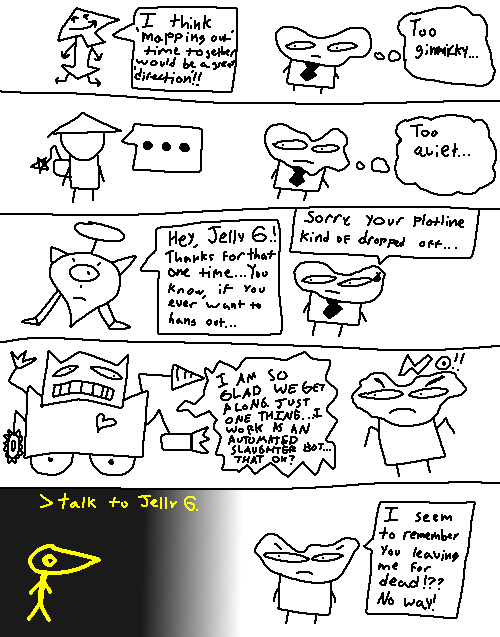 I think
mapping out
time together
would be a great
direction!!
Too
gimmicky...
Too
quiet...
Hey, Jelly G.!
Thanks for that
one time...You
know, if you
ever want to
hans out...
Sorry, your plotline
kind of dropped off...
I AM SO
GLAD WE GET
ALONG. JUST
ONE THING...I
WORK AS AN
AUTOMATED
SLAUGHTER BOT...
THAT OK?
!!
>talk to Jelly G.
I seem
to remember
you leaving
me for
dead!??
No way!